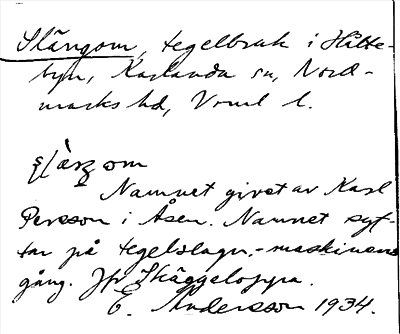 Slängom, tegelbruk i Hålte-
byn, Karlanda sn, Nord-
marks hd, Vrml l.
Namnet givet av Karl
Persson i Åsen. Namnet syf-
tar på tegelslagn.-maskinens
gång. Jfr Skäggeloppa.
E. Andersson 1934.